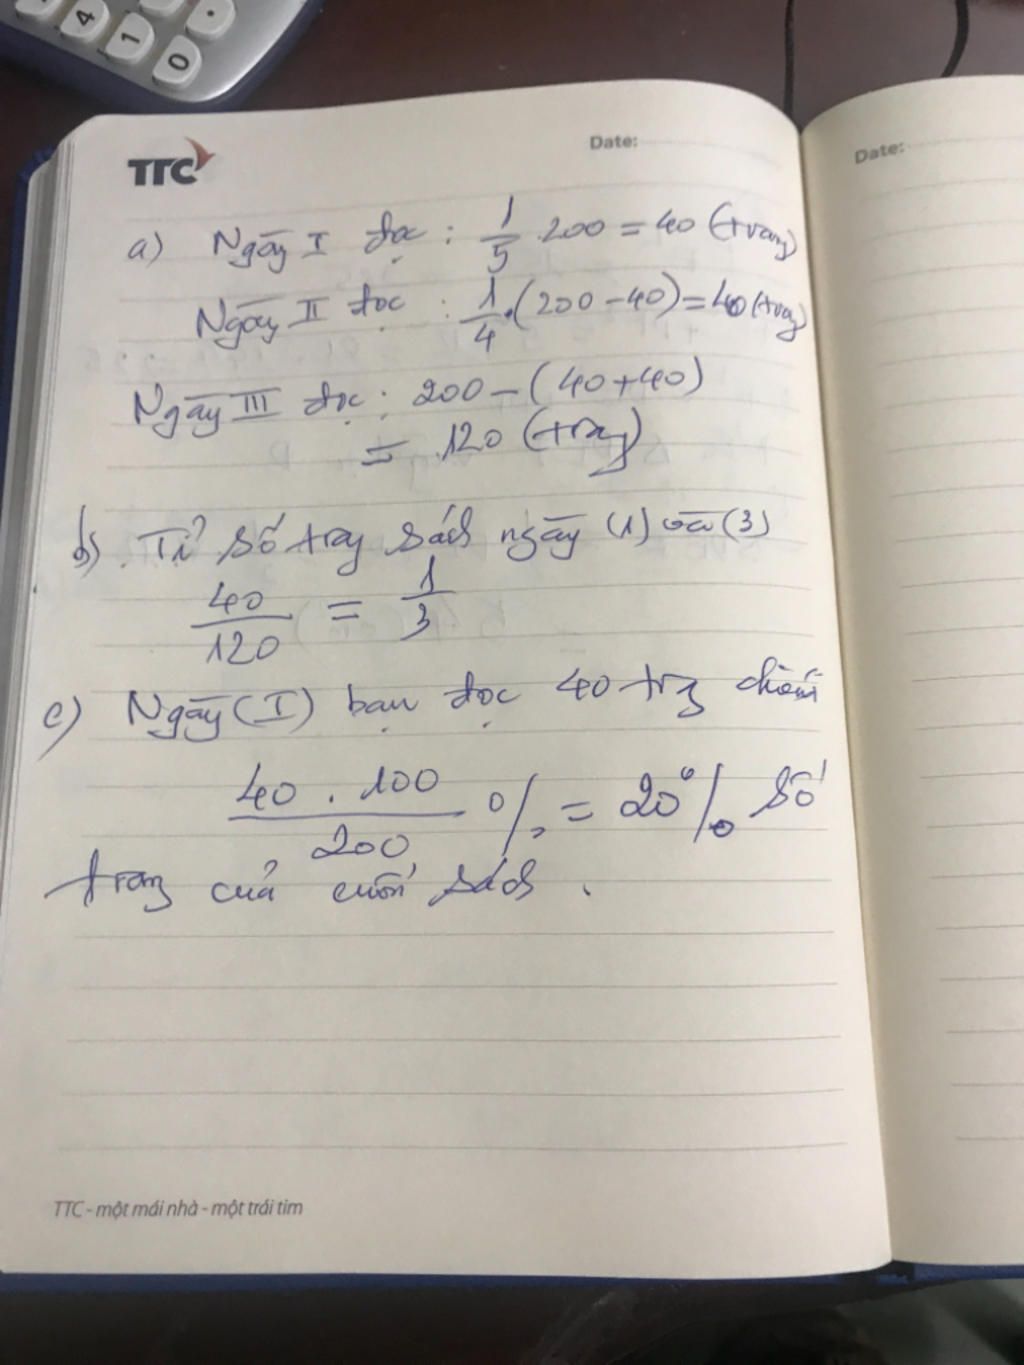 4
1
0
.
TTC
Date:
Date:
a) Ngày I đọc : 1/5 . 200 = 40 (trang)
Ngày II đọc : 1/4 . (200 - 40) = 40 (trang)
Ngày III đọc : 200 - (40 + 40)
= 120 (trang)
b) Tỉ số trang sách ngày (1) và (3)
40/120 = 1/3
c) Ngày (I) bạn đọc 40 trg chiếm
40 . 100/200 % = 20% số
trang của cuốn sách .
TTC - một mái nhà - một trái tim